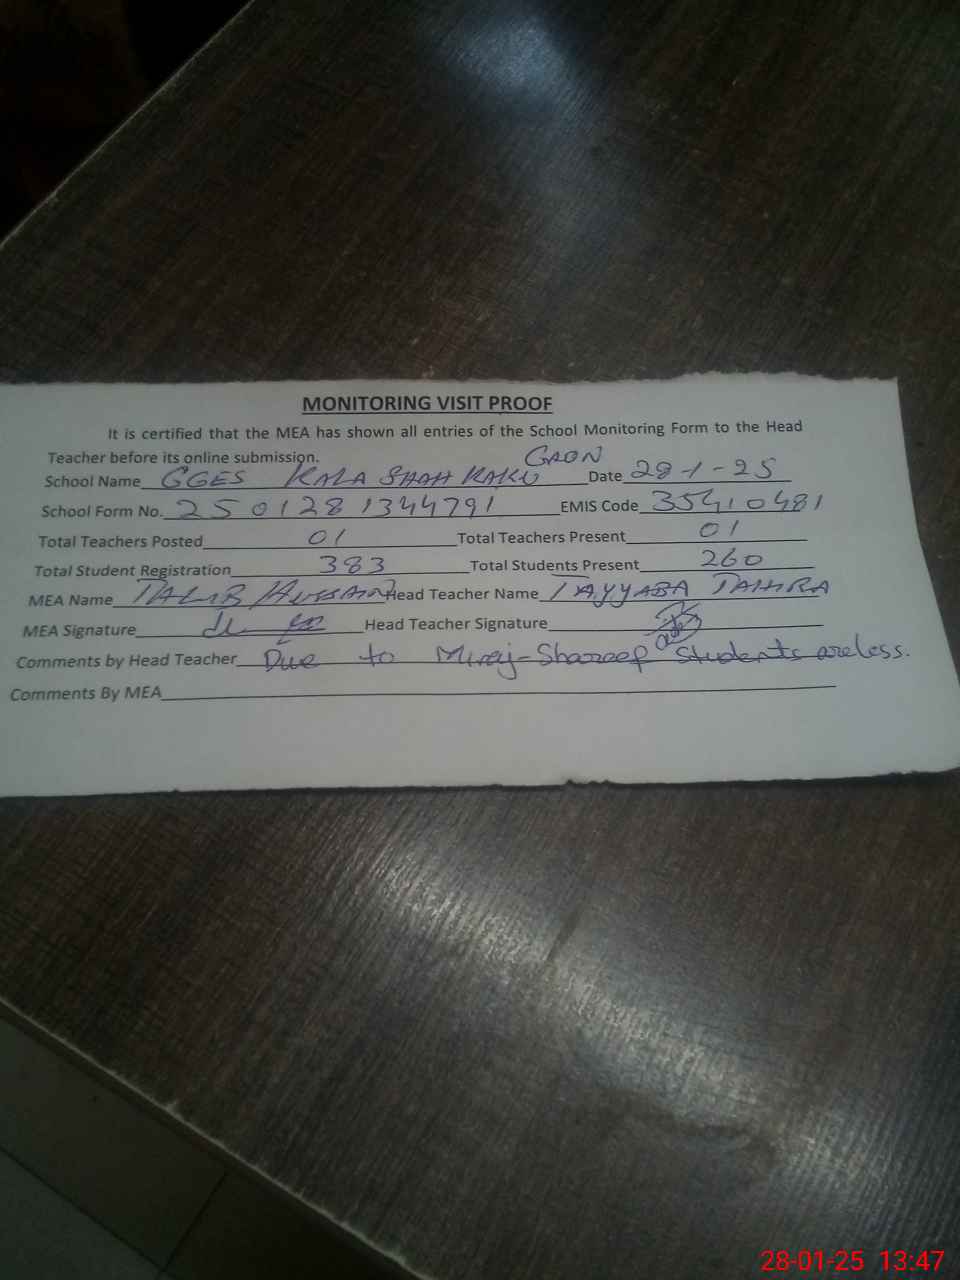 MONITORING VISIT PROOF
It is certified that the MEA has shown all entries of the School Monitoring Form to the Head
Teacher before its online submission.
School Name GGES KALA SHAH KAKU GAON Date 28-1-25
School Form No. 2501281344791 EMIS Code 35410481
Total Teachers Posted 01 Total Teachers Present 01
Total Student Registration 383 Total Students Present 260
MEA Name TALIB HUSSAIN Head Teacher Name TAYYABA TAHIRA
MEA Signature Head Teacher Signature
Comments by Head Teacher Due to Miraj-Shareef students are less.
Comments By MEA
28-01-25 13:47